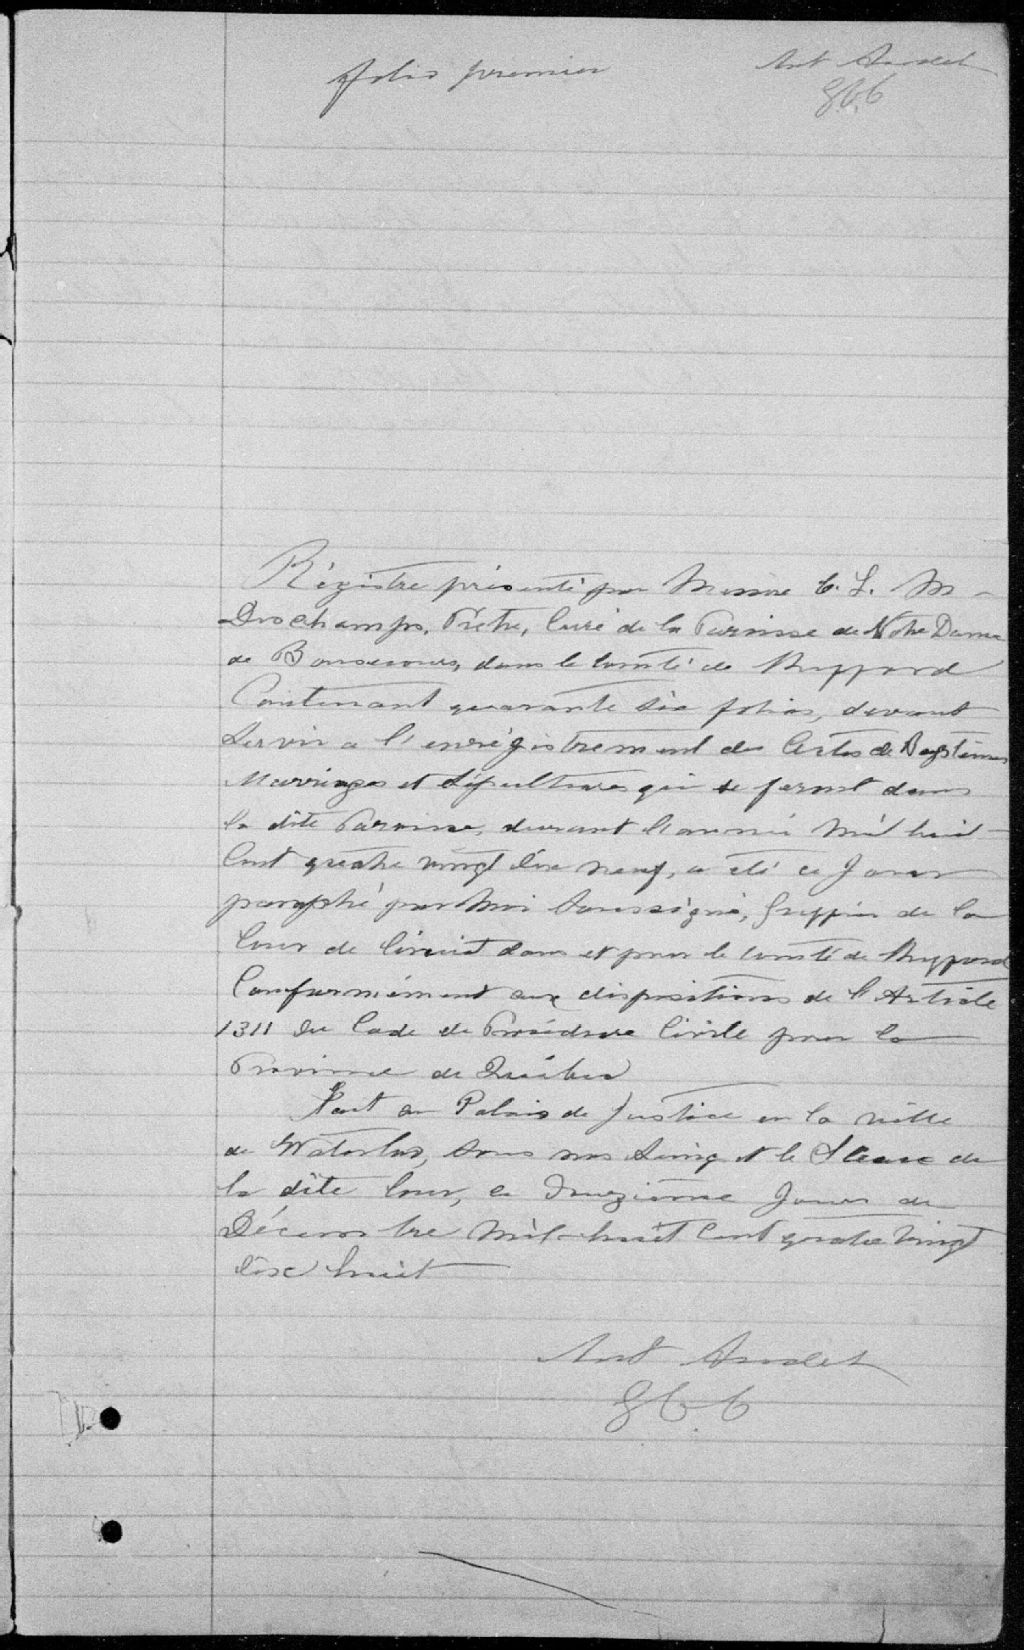 folio premier
Ant Audet
G.C.C
Régistre présenté par Messire C. L. M
Deschamps, Prêtre, Curé de la Paroisse de Notre Dame
de Bonsecours, dans le Comté de Shefford
Contenant quarante six folios, devant
Servir a l'enrégistrement des Actes de Baptêmes
Marriages et Sépultures qui se feront dans
la dite Paroisse, durant l'année Mil huit
Cent quatre vingt dix neuf, a été ce Jour
paraphé par Moi Soussigné, Greffier de la
Cour de Circuit dans et pour le Comté de Shefford
Conformément aux dispositions de l'Article
1311 du Code de Procédure Civile pour la
Province de Québec
Fait au Palais de Justice en la ville
de Waterloo, Sous mon Seing et le Sceau de
la dite Cour, ce Jour de
Décembre Mil huit Cent quatre Vingt
dix huit
Ant Audet
G.C.C